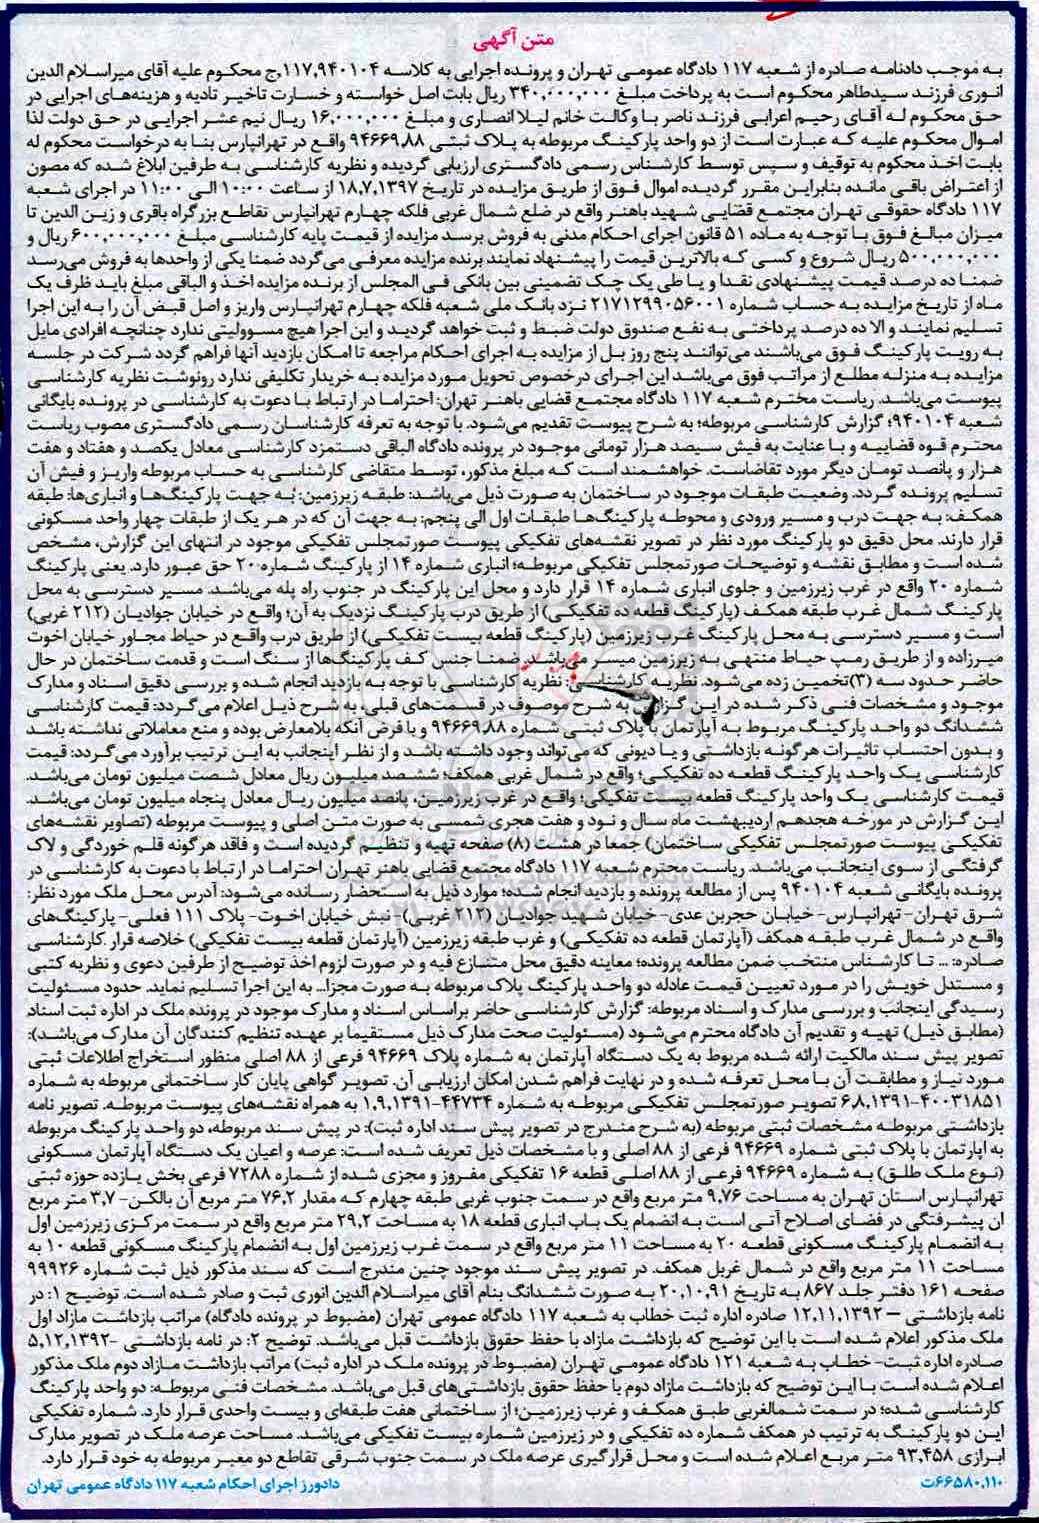 متن آگهی
به موجب دادنامه صادره از شعبه ۱۱۷ دادگاه عمومی تهران و پرونده اجرایی به کلاسه ۱۱۷,۹۴۰۱۰۴,ج محکوم علیه آقای میراسلام الدین
انوری فرزند سیدطاهر محکوم است به پرداخت مبلغ ۳۴۰,۰۰۰,۰۰۰ ریال بابت اصل خواسته و خسارت تاخیر تادیه و هزینه‌های اجرایی در
حق محکوم له آقای رحیم اعرابی فرزند ناصر با وکالت خانم لیلا انصاری و مبلغ ۱۶,۰۰۰,۰۰۰ ریال نیم عشر اجرایی در حق دولت لذا
اموال محکوم علیه که عبارت است از دو واحد پارکینگ مربوطه به پلاک ثبتی ۹۴۶۶۹,۸۸ واقع در تهرانپارس بنا به درخواست محکوم له
بابت اخذ محکوم به توقیف و سپس توسط کارشناس رسمی دادگستری ارزیابی گردیده و نظریه کارشناسی به طرفین ابلاغ شده که مصون
از اعتراض باقی مانده بنابراین مقرر گردیده اموال فوق از طریق مزایده در تاریخ ۱۸,۷,۱۳۹۷ از ساعت ۱۰:۰۰ الی ۱۱:۰۰ در اجرای شعبه
۱۱۷ دادگاه حقوقی تهران مجتمع قضایی شهید باهنر واقع در ضلع شمال غربی فلکه چهارم تهرانپارس تقاطع بزرگراه باقری و زین الدین تا
میزان مبالغ فوق با توجه به ماده ۵۱ قانون اجرای احکام مدنی به فروش برسد مزایده از قیمت پایه کارشناسی مبلغ ۶۰۰,۰۰۰,۰۰۰ ریال و
۵۰۰,۰۰۰,۰۰۰ ریال شروع و کسی که بالاترین قیمت را پیشنهاد نمایند برنده مزایده معرفی می‌گردد ضمنا یکی از واحدها به فروش می‌رسد
ضمنا ده درصد قیمت پیشنهادی نقدا و یا طی یک چک تضمینی بین بانکی فی المجلس از برنده مزایده اخذ و الباقی مبلغ باید ظرف یک
ماه از تاریخ مزایده به حساب شماره ۲۱۷۱۲۹۹۰۵۶۰۰۱ نزد بانک ملی شعبه فلکه چهارم تهرانپارس واریز و اصل قبض آن را به این اجرا
تسلیم نمایند و الا ده درصد پرداختی به نفع صندوق دولت ضبط و ثبت خواهد گردید و این اجرا هیچ مسوولیتی ندارد چنانچه افرادی مایل
به رویت پارکینگ فوق می‌باشند می‌توانند پنج روز بل از مزایده به اجرای احکام مراجعه تا امکان بازدید آنها فراهم گردد شرکت در جلسه
مزایده به منزله مطلع از مراتب فوق می‌باشد این اجرای درخصوص تحویل مورد مزایده به خریدار تکلیفی ندارد رونوشت نظریه کارشناسی
پیوست می‌باشد. ریاست محترم شعبه ۱۱۷ دادگاه مجتمع قضایی باهنر تهران: احتراما در ارتباط با دعوت به کارشناسی در پرونده بایگانی
شعبه ۹۴۰۱۰۴؛ گزارش کارشناسی مربوطه؛ به شرح پیوست تقدیم می‌شود. با توجه به تعرفه کارشناسان رسمی دادگستری مصوب ریاست
محترم قوه قضاییه و با عنایت به فیش سیصد هزار تومانی موجود در پرونده دادگاه الباقی دستمزد کارشناسی معادل یکصد و هفتاد و هفت
هزار و پانصد تومان دیگر مورد تقاضاست. خواهشمند است که مبلغ مذکور، توسط متقاضی کارشناسی به حساب مربوطه واریز و فیش آن
تسلیم پرونده گردد. وضعیت طبقات موجود در ساختمان به صورت ذیل می‌باشد: طبقه زیرزمین: به جهت پارکینگ‌ها و انباری‌ها: طبقه
همکف: به جهت درب و مسیر ورودی و محوطه پارکینگ‌ها طبقات اول الی پنجم: به جهت آن که در هر یک از طبقات چهار واحد مسکونی
قرار دارند. محل دقیق دو پارکینگ مورد نظر در تصویر نقشه‌های تفکیکی پیوست صورتمجلس تفکیکی موجود در انتهای این گزارش، مشخص
شده است و مطابق نقشه و توضیحات صورتمجلس تفکیکی مربوطه؛ انباری شماره ۱۴ از پارکینگ شماره ۲۰ حق عبور دارد. یعنی پارکینگ
شماره ۲۰ واقع در غرب زیرزمین و جلوی انباری شماره ۱۴ قرار دارد و محل این پارکینگ در جنوب راه پله می‌باشد. مسیر دسترسی به محل
پارکینگ شمال غرب طبقه همکف (پارکینگ قطعه ده تفکیکی) از طریق درب پارکینگ نزدیک به آن؛ واقع در خیابان جوادیان (۲۱۲ غربی)
است و مسیر دسترسی به محل پارکینگ غرب زیرزمین (پارکینگ قطعه بیست تفکیکی) از طریق درب واقع در حیاط مجاور خیابان اخوت
میرزاده و از طریق رمپ حیاط منتهی به زیرزمین میسر می‌باشد. ضمنا جنس کف پارکینگ‌ها از سنگ است و قدمت ساختمان در حال
حاضر حدود سه (۳) تخمین زده می‌شود. نظریه کارشناسی: نظریه کارشناسی با توجه به بازدید انجام شده و بررسی دقیق اسناد و مدارک
موجود و مشخصات فنی ذکر شده در این گزارش به شرح موصوف در قسمت‌های قبلی، به شرح ذیل اعلام می‌گردد: قیمت کارشناسی
ششدانگ دو واحد پارکینگ مربوط به آپارتمان با پلاک ثبتی شماره ۹۴۶۶۹,۸۸ و با فرض آنکه بلامعارض بوده و منع معاملاتی نداشته باشد
و بدون احتساب تاثیرات هرگونه بازداشتی و یا دیونی که می‌تواند وجود داشته باشد و از نظر اینجانب به این ترتیب برآورد می‌گردد: قیمت
کارشناسی یک واحد پارکینگ قطعه ده تفکیکی؛ واقع در شمال غربی همکف؛ ششصد میلیون ریال معادل شصت میلیون تومان می‌باشد.
قیمت کارشناسی یک واحد پارکینگ قطعه بیست تفکیکی؛ واقع در غرب زیرزمین، پانصد میلیون ریال معادل پنجاه میلیون تومان می‌باشد.
این گزارش در مورخه هجدهم اردیبهشت ماه سال و نود و هفت هجری شمسی به صورت متن اصلی و پیوست مربوطه (تصاویر نقشه‌های
تفکیکی پیوست صورتمجلس تفکیکی ساختمان) جمعا در هشت (۸) صفحه تهیه و تنظیم گردیده است و فاقد هرگونه قلم خوردگی و لاک
گرفتگی از سوی اینجانب می‌باشد. ریاست محترم شعبه ۱۱۷ دادگاه مجتمع قضایی باهنر تهران احتراما در ارتباط با دعوت به کارشناسی در
پرونده بایگانی شعبه ۹۴۰۱۰۴ پس از مطالعه پرونده و بازدید انجام شده؛ موارد ذیل به استحضار رسانده می‌شود: آدرس محل ملک مورد نظر:
شرق تهران- تهرانپارس- خیابان حجربن عدی- خیابان شهید جوادیان (۲۱۲ غربی)- نبش خیابان اخوت- پلاک ۱۱۱ فعلی- پارکینگ‌های
واقع در شمال غرب طبقه همکف (آپارتمان قطعه ده تفکیکی) و غرب طبقه زیرزمین (آپارتمان قطعه بیست تفکیکی) خلاصه قرار کارشناسی
صادره: ... تا کارشناس منتخب ضمن مطالعه پرونده؛ معاینه دقیق محل متنازع فیه و در صورت لزوم اخذ توضیح از طرفین دعوی و نظریه کتبی
و مستدل خویش را در مورد تعیین قیمت عادله دو واحد پارکینگ پلاک مربوطه به صورت مجزا... به این اجرا تسلیم نماید. حدود مسئولیت
رسیدگی اینجانب و بررسی مدارک و اسناد مربوطه: گزارش کارشناسی حاضر براساس اسناد و مدارک موجود در پرونده ملک در اداره ثبت اسناد
(مطابق ذیل) تهیه و تقدیم آن دادگاه محترم می‌شود (مسئولیت صحت مدارک ذیل مستقیما بر عهده تنظیم کنندگان آن مدارک می‌باشد):
تصویر پیش سند مالکیت ارائه شده مربوط به یک دستگاه آپارتمان به شماره پلاک ۹۴۶۶۹ فرعی از ۸۸ اصلی منظور استخراج اطلاعات ثبتی
مورد نیاز و مطابقت آن با محل تعرفه شده و در نهایت فراهم شدن امکان ارزیابی آن. تصویر گواهی پایان کار ساختمانی مربوطه به شماره
۴۰۰۳۱۸۵۱-۶,۸,۱۳۹۱ تصویر صورتمجلس تفکیکی مربوطه به شماره ۴۴۷۳۴-۱,۹,۱۳۹۱ به همراه نقشه‌های پیوست مربوطه. تصویر نامه
بازداشتی مربوطه مشخصات ثبتی مربوطه (به شرح مندرج در تصویر پیش سند اداره ثبت): در پیش سند مربوطه، دو واحد پارکینگ مربوطه
به اپارتمان با پلاک ثبتی شماره ۹۴۶۶۹ فرعی از ۸۸ اصلی و با مشخصات ذیل تعریف شده است: عرصه و اعیان یک دستگاه آپارتمان مسکونی
(نوع ملک طلق) به شماره ۹۴۶۶۹ فرعی از ۸۸ اصلی قطعه ۱۶ تفکیکی مفروز و مجزی شده از شماره ۷۲۸۸ فرعی بخش یازده حوزه ثبتی
تهرانپارس استان تهران به مساحت ۹,۷۶ متر مربع واقع در سمت جنوب غربی طبقه چهارم که مقدار ۷۶,۲ متر مربع آن بالکن- ۳,۷ متر مربع
ان پیشرفتگی در فضای اصلاح آتی است به انضمام یک باب انباری قطعه ۱۸ به مساحت ۲۹,۲ متر مربع واقع در سمت مرکزی زیرزمین اول
به انضمام پارکینگ مسکونی قطعه ۲۰ به مساحت ۱۱ متر مربع واقع در سمت غرب زیرزمین اول به انضمام پارکینگ مسکونی قطعه ۱۰ به
مساحت ۱۱ متر مربع واقع در شمال غربل همکف. در تصویر پیش سند موجود چنین مندرج است که سند مذکور ذیل ثبت شماره ۹۹۹۲۶
صفحه ۱۶۱ دفتر جلد ۸۶۷ به تاریخ ۲۰,۱۰,۹۱ به صورت ششدانگ بنام آقای میراسلام الدین انوری ثبت و صادر شده است. توضیح ۱: در
نامه بازداشتی – ۱۲,۱۱,۱۳۹۲ صادره اداره ثبت خطاب به شعبه ۱۱۷ دادگاه عمومی تهران (مضبوط در پرونده دادگاه) مراتب بازداشت مازاد اول
ملک مذکور اعلام شده است با این توضیح که بازداشت مازاد با حفظ حقوق بازداشت قبل می‌باشد. توضیح ۲: در نامه بازداشتی -۵,۱۲,۱۳۹۲
صادره اداره ثبت- خطاب به شعبه ۱۲۱ دادگاه عمومی تهران (مضبوط در پرونده ملک در اداره ثبت) مراتب بازداشت مازاد دوم ملک مذکور
اعلام شده است با این توضیح که بازداشت مازاد دوم با حفظ حقوق بازداشتی‌های قبل می‌باشد. مشخصات فنی مربوطه: دو واحد پارکینگ
کارشناسی شده؛ در سمت شمالغربی طبق همکف و غرب زیرزمین؛ از ساختمانی هفت طبقه‌ای و بیست واحدی قرار دارد. شماره تفکیکی
این دو پارکینگ به ترتیب در همکف شماره ده تفکیکی و در زیرزمین شماره بیست تفکیکی می‌باشد. مساحت عرصه ملک در تصویر مدارک
ابرازی ۹۳,۴۵۸ متر مربع اعلام شده است و محل قرارگیری عرصه ملک در سمت جنوب شرقی تقاطع دو معبر مربوطه به خود قرار دارد.
۱۱۰,۶۶۵۸۰ت
دادورز اجرای احکام شعبه ۱۱۷ دادگاه عمومی تهران